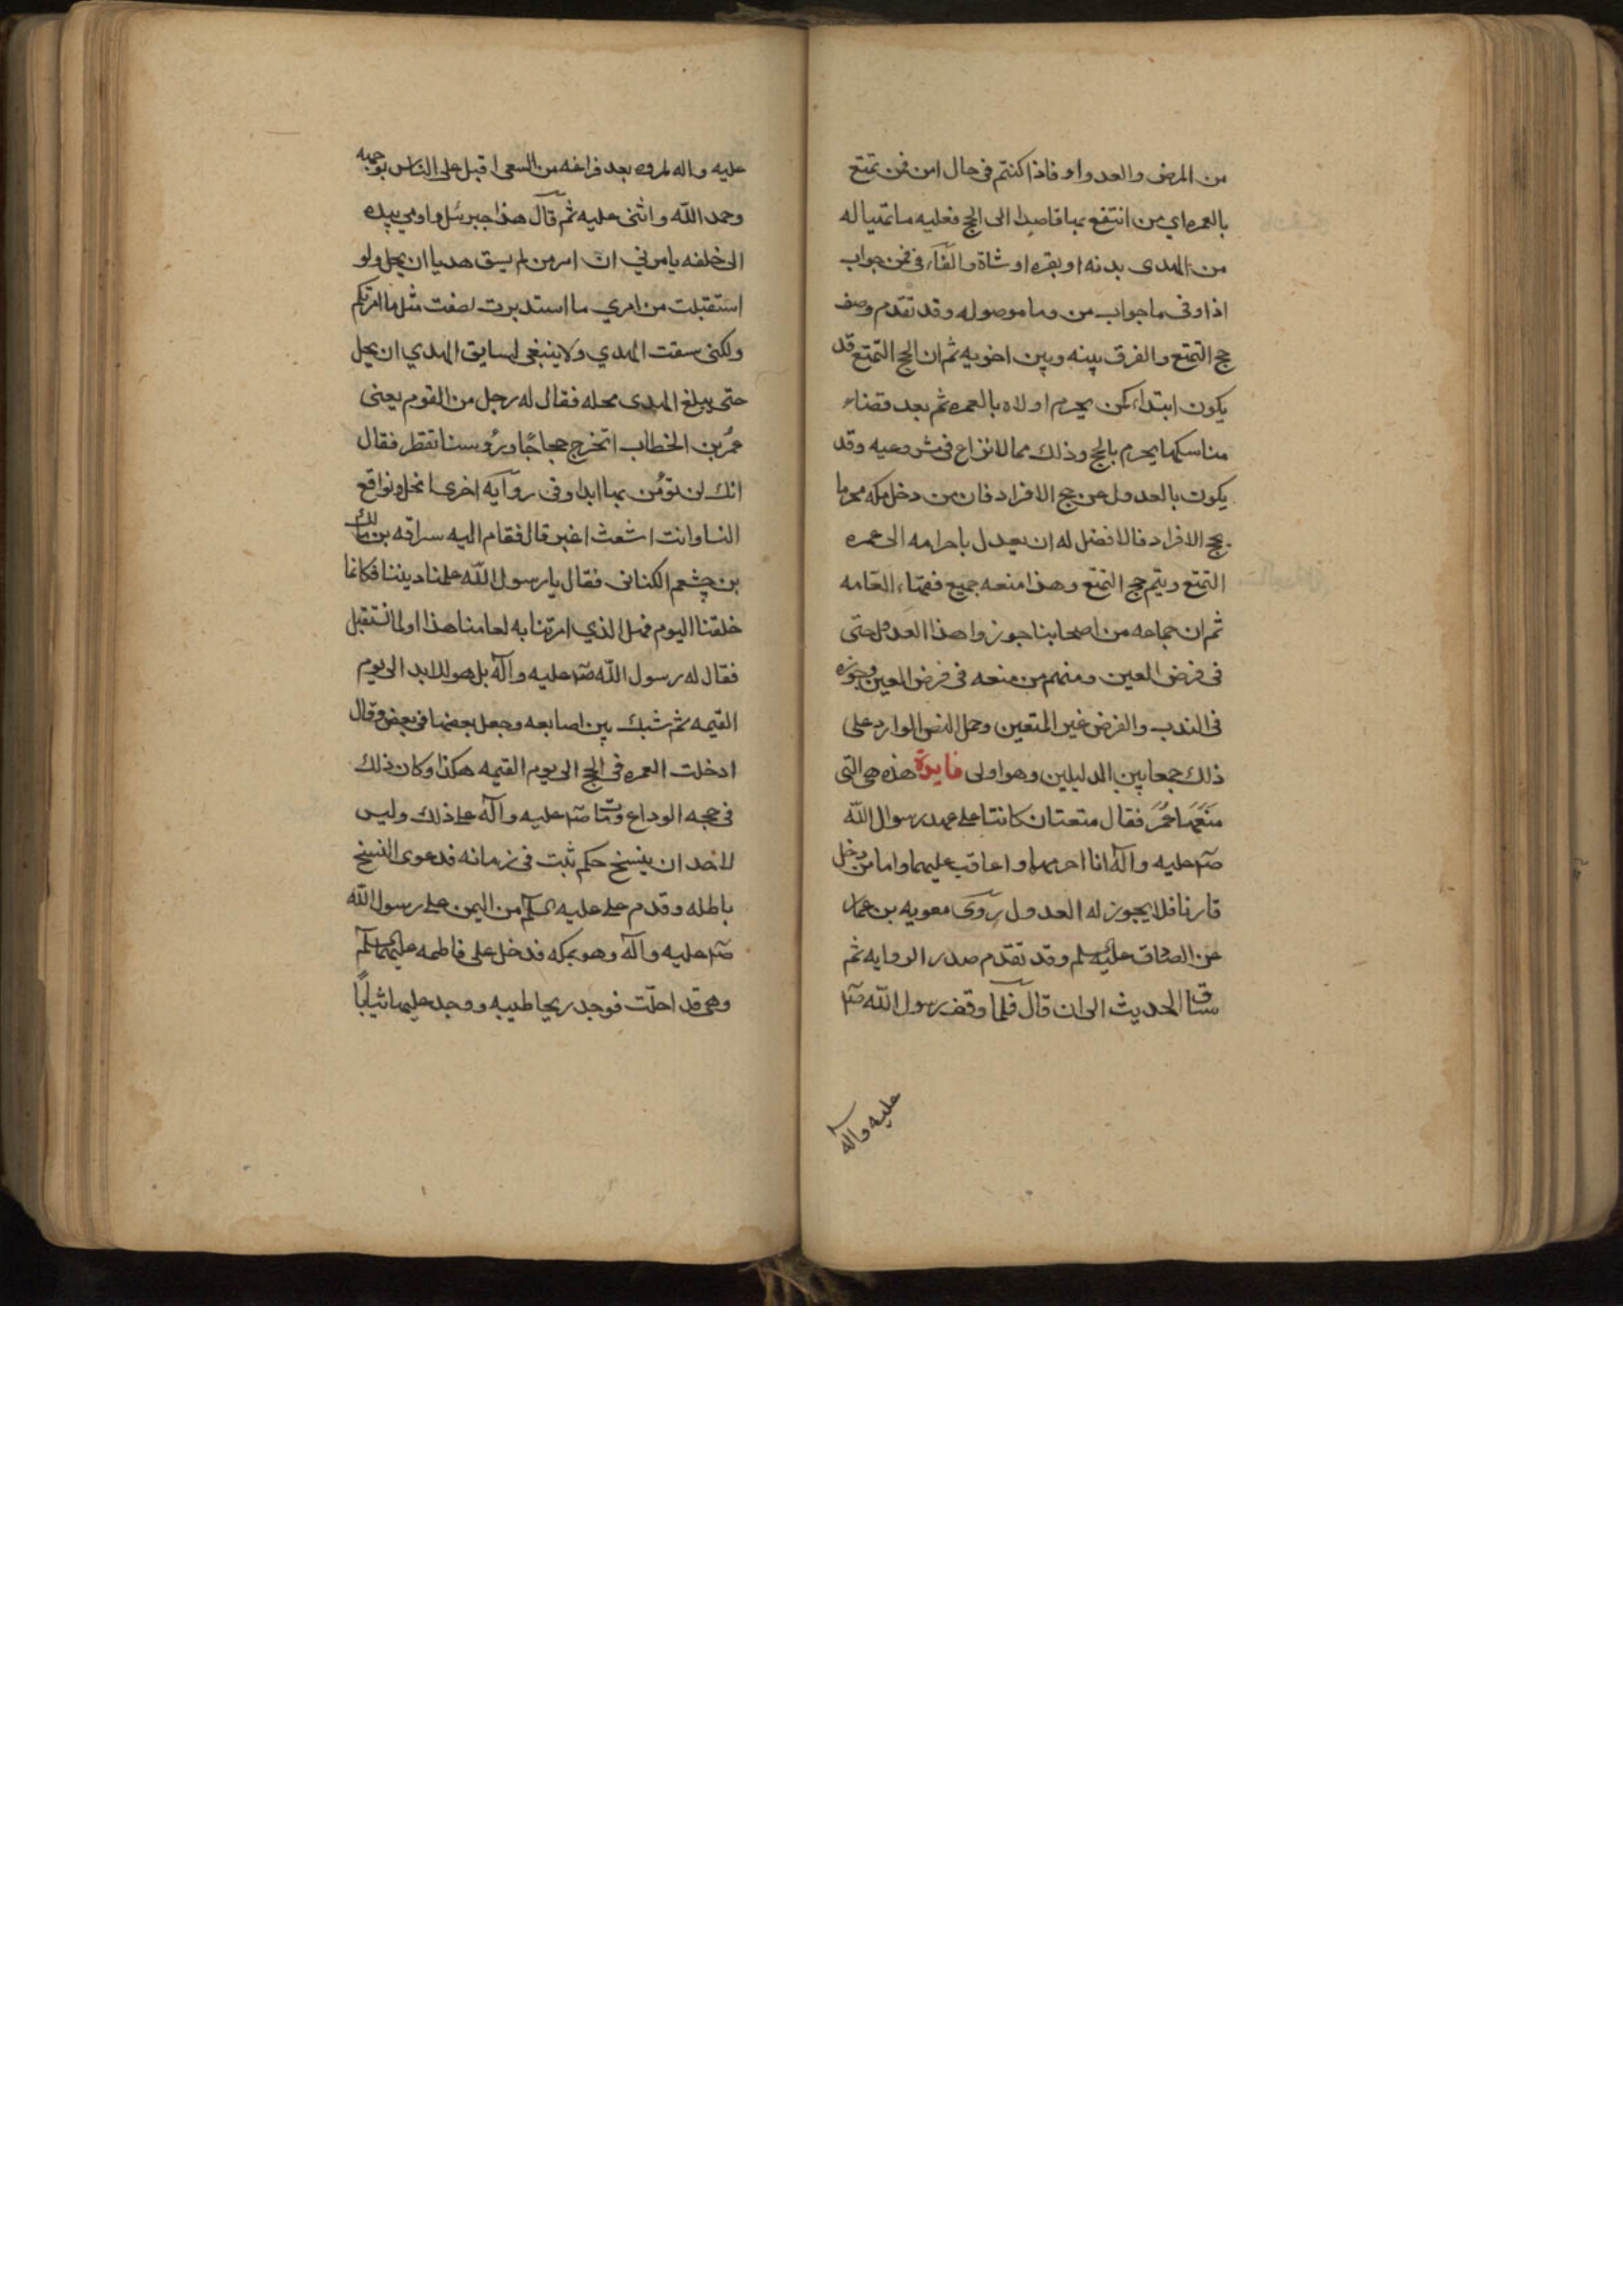 من المرض والعدو او فاذا كنتم فى حال امن فمن تمتع
بالعمره اي من انتفع بها قاصدا الى الحج فعليه ما تهيا له
من الهدى بدنه او بقره او شاة والفآء فى فمن جواب
اذا وفى ما جواب من وما موصوله وقد تقدم وصف
حج التمتع والفرق بينه وبين اخويه ثم ان الحج التمتع قد
يكون ابتداء كمن يحرم اولاه بالعمره ثم بعد قضاء
مناسكها يحرم بالحج وذلك مما لا نزاع فى مشروعيه وقد
يكون بالعدول عن حج الافراد فان من دخل مكه محرما
بحج الافراد فالافضل له ان يعدل باحرامه الى عمره
التمتع ويتم حج التمتع وهذا منعه جميع فقهاء العامه
ثم ان جماعه من اصحابنا جوزوا هذا العدول حتى
فى فرض العين ومنهم من منعه فى فرض العين وجوزه
فى الندب والفرض غير المتعين وحمل النص الوارد على
ذلك جمعا بين الدليلين وهو اولى فايدة هذه هى التى
منعها عمر فقال متعتان كانتا على عهد رسوال الله
صه عليه وآله انا احرمهما واعاقب عليهما واما من دخل
قارنا فلا يجوز له العدول روى معويه بن عمار
عن الصادق عليه سلم وقد تقدم صدر الروايه ثم
ساق الحديث الى ان قال فلما وقف رسول الله صه
عليه وآله
عليه واله لمروه بعد فراغه من السعى اقبل على الناس بوجهه
وحمد الله واثنى عليه ثم قال هذا جبرئل واومي بيده
الى خلفه يامرني ان امر من لم يسق هديا ان يحل ولو
استقبلت من امري ما استدبرت لصغت مثل ما امرتكم
ولكنى سقت الهدي ولا ينبغى لسايق الهدي ان يحل
حتى يبلغ الهدى محله فقال له رجل من القوم يعنى
عمر بن الخطاب اتخرج حجاجًا ورؤسنا تقطر فقال
انك لن تؤمن بها ابدا وفى روآيه اخرى انحل ونواقع
النسا وانت اشعث اغبر قال فقام اليه سراقه بن مالك
بن جشعم الكنانى فقال يا رسول الله علمنا ديننا فكانما
خلقنا اليوم فهل الذي امرتنا به لعامنا هذا او لما نستقبل
فقال له رسول الله صه عليه وآله بل هو للابد الى يوم
القيمه ثم شبك بين اصابعه وجعل بعضها فى بعض وقال
ادخلت العمره فى الحج الى يوم القيمه هكذا وكان ذلك
فى حجه الوداع ومات صه عليه وآله على ذلك وليس
لاحد ان ينسخ حكم ثبت فى زمانه فدعوى النسخ
باطله وقدم على عليه سلم من اليمن على رسول الله
صه عليه وآله وهو بمكه فدخل على فاطمه عليهما سلم
وهى قد احلّت فوجد ريحا طيبه ووجد عليها ثيابًا